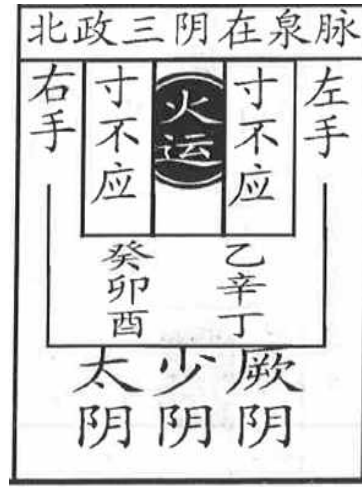 北政三阴在泉脉
右手
寸不应
火运
寸不应
左手
癸卯酉
乙辛丁
太阴
少阴
厥阴